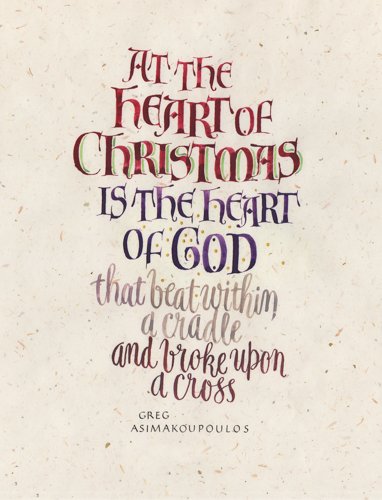 AT THE
HEART OF
CHRISTMAS
IS THE HEART
OF GOD
that beat within
a cradle
and broke upon
a cross
GREG
ASIMAKOUPOULOS